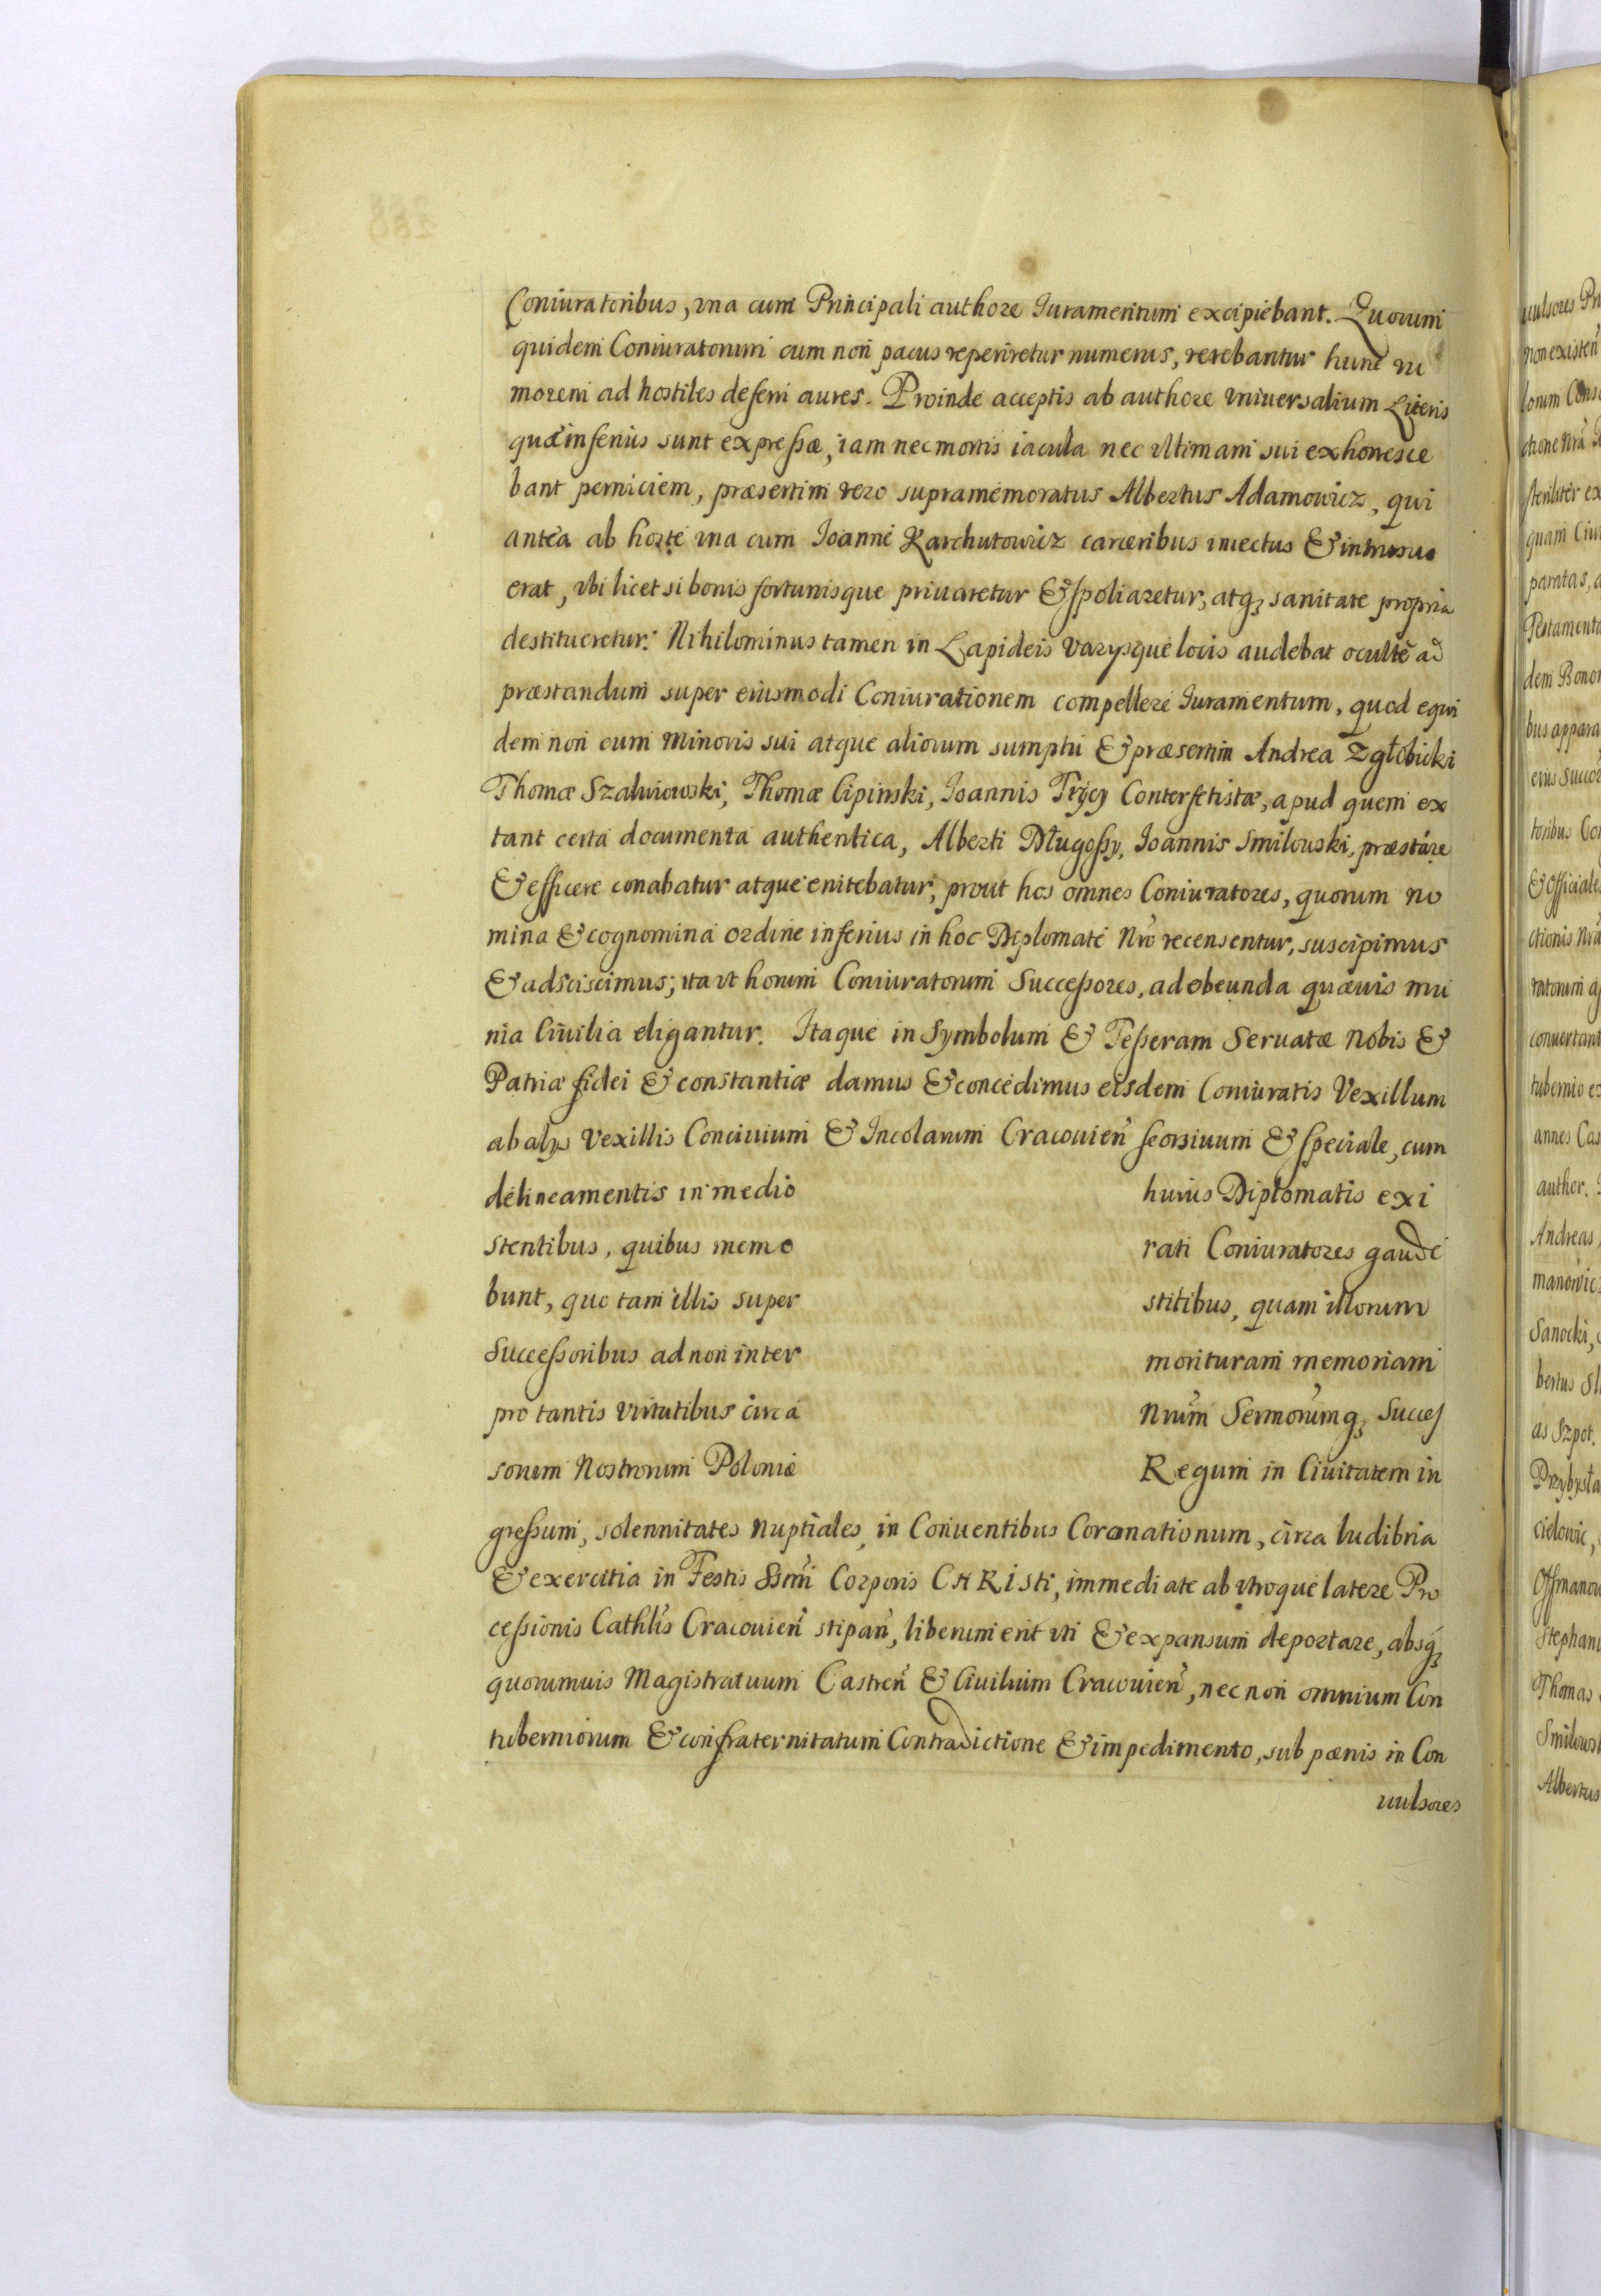 Coniuratoribus, vna cum Principali authore Iuramentum excipiebant. Quorum
quidem Coniuratorum cum non pacus reperiretur numerus, verebantur hunc ru
morem ad hostiles deferri aures. Proinde acceptis ab authore vniversalium Literis
quæ inferius sunt expressæ, iam nec mortis iacula nec vltimam sui exhorresce
bant perniciem, præsertim vero supramemoratus Albertus Adamowicz, qui
antea ab hoste vna cum Ioanne Karchutowicz carceribus iniectus & intrusus
erat, vbi licet si bonis fortunisque priuaretur & spoliaretur, atq; sanitate propria
destitueretur: Nihilominus tamen in Lapideis Varysque locis audebat oculte ad
præstandum super eiusmodi Coniurationem compellere Iuramentum, quod equi
dem non cum Minoris sui atque aliorum sumptu & præsertim Andrea Zgłobicki
Thomæ Szalwiowski, Thomæ Lipinski, Ioannis Trycy Conterfetistæ, apud quem ex
tant certa documenta authentica, Alberti Długossy, Ioannis Smilowski, præstare
& efficere conabatur atque enitebatur, prout hos omnes Coniuratores, quorum no
mina & cognomina ordine inferius in hoc Diplomate Nro recensentur, suscipimus
& adsciscimus; ita vt horum Coniuratorum Successores, ad obeunda quævis mu
nia Ciuilia eligantur. Itaque in Symbolum & Tesseram Seruatæ Nobis &
Patriæ fidei & constantiæ damus & concedimus eisdem Coniuratis Vexillum
ab alys Vexillis Conciuium & Incolarum Cracouień seorsiuum & speciale, cum
delineamentis in medio huius Diplomatis exi
stentibus, quibus memo rati Coniuratores gaude
bunt, quo tam illis super stitibus, quam illorum
Successoribus ad non inter morituram memoriam
pro tantis Virtutibus circa Nrum Sermorumq; Succes
sorum Nostrorum Poloniæ Regum in Ciuitatem in
gressum, solennitates Nuptiales, in Conuentibus Coronationum, circa ludibria
& exercitia in Festis SSmi Corporis CHRISti, immediate ab vtroque latere Pro
cessionis Cathlis Cracouień stipań, liberum erit vti & expansum deportare, absq;
quorumuis Magistratuum Castreń & Ciuilium Cracouień, nec non omnium Con
tuberniorum & confraternitatum Contradictione & impedimento, sub pœnis in Con
uulsores